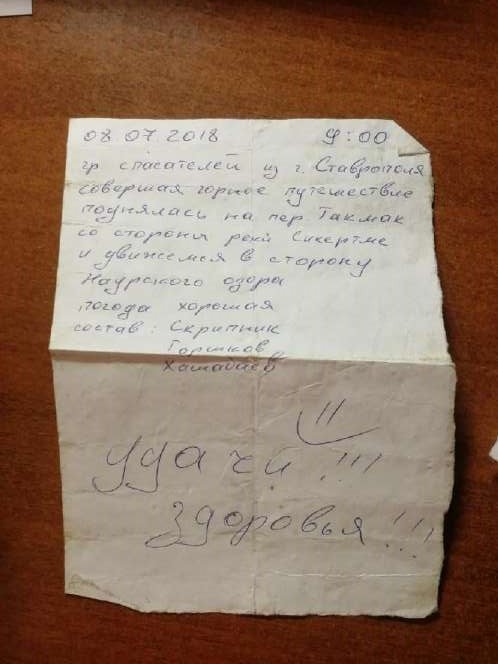 08.07.2018 9:00
гр спасателей из г. Ставрополя
совершая горное путешествие
поднялась на пер Такмак
со стороны реки Сикертме
и движемся в сторону
Наурского озора
погода хорошая
состав: Скрипник
Горшков
Хашабаев
удачи !!!
здоровья!!!